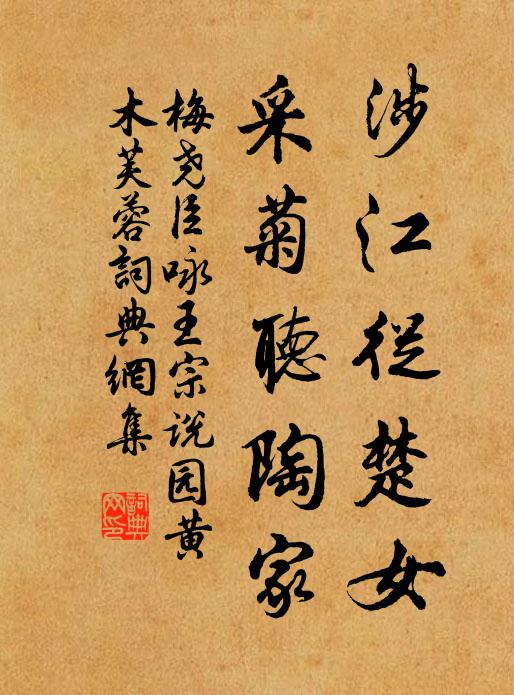 涉江從楚女
采菊聽陶家
梅尧臣咏王宗说园黄
木芙蓉詞典網集
詞典網印